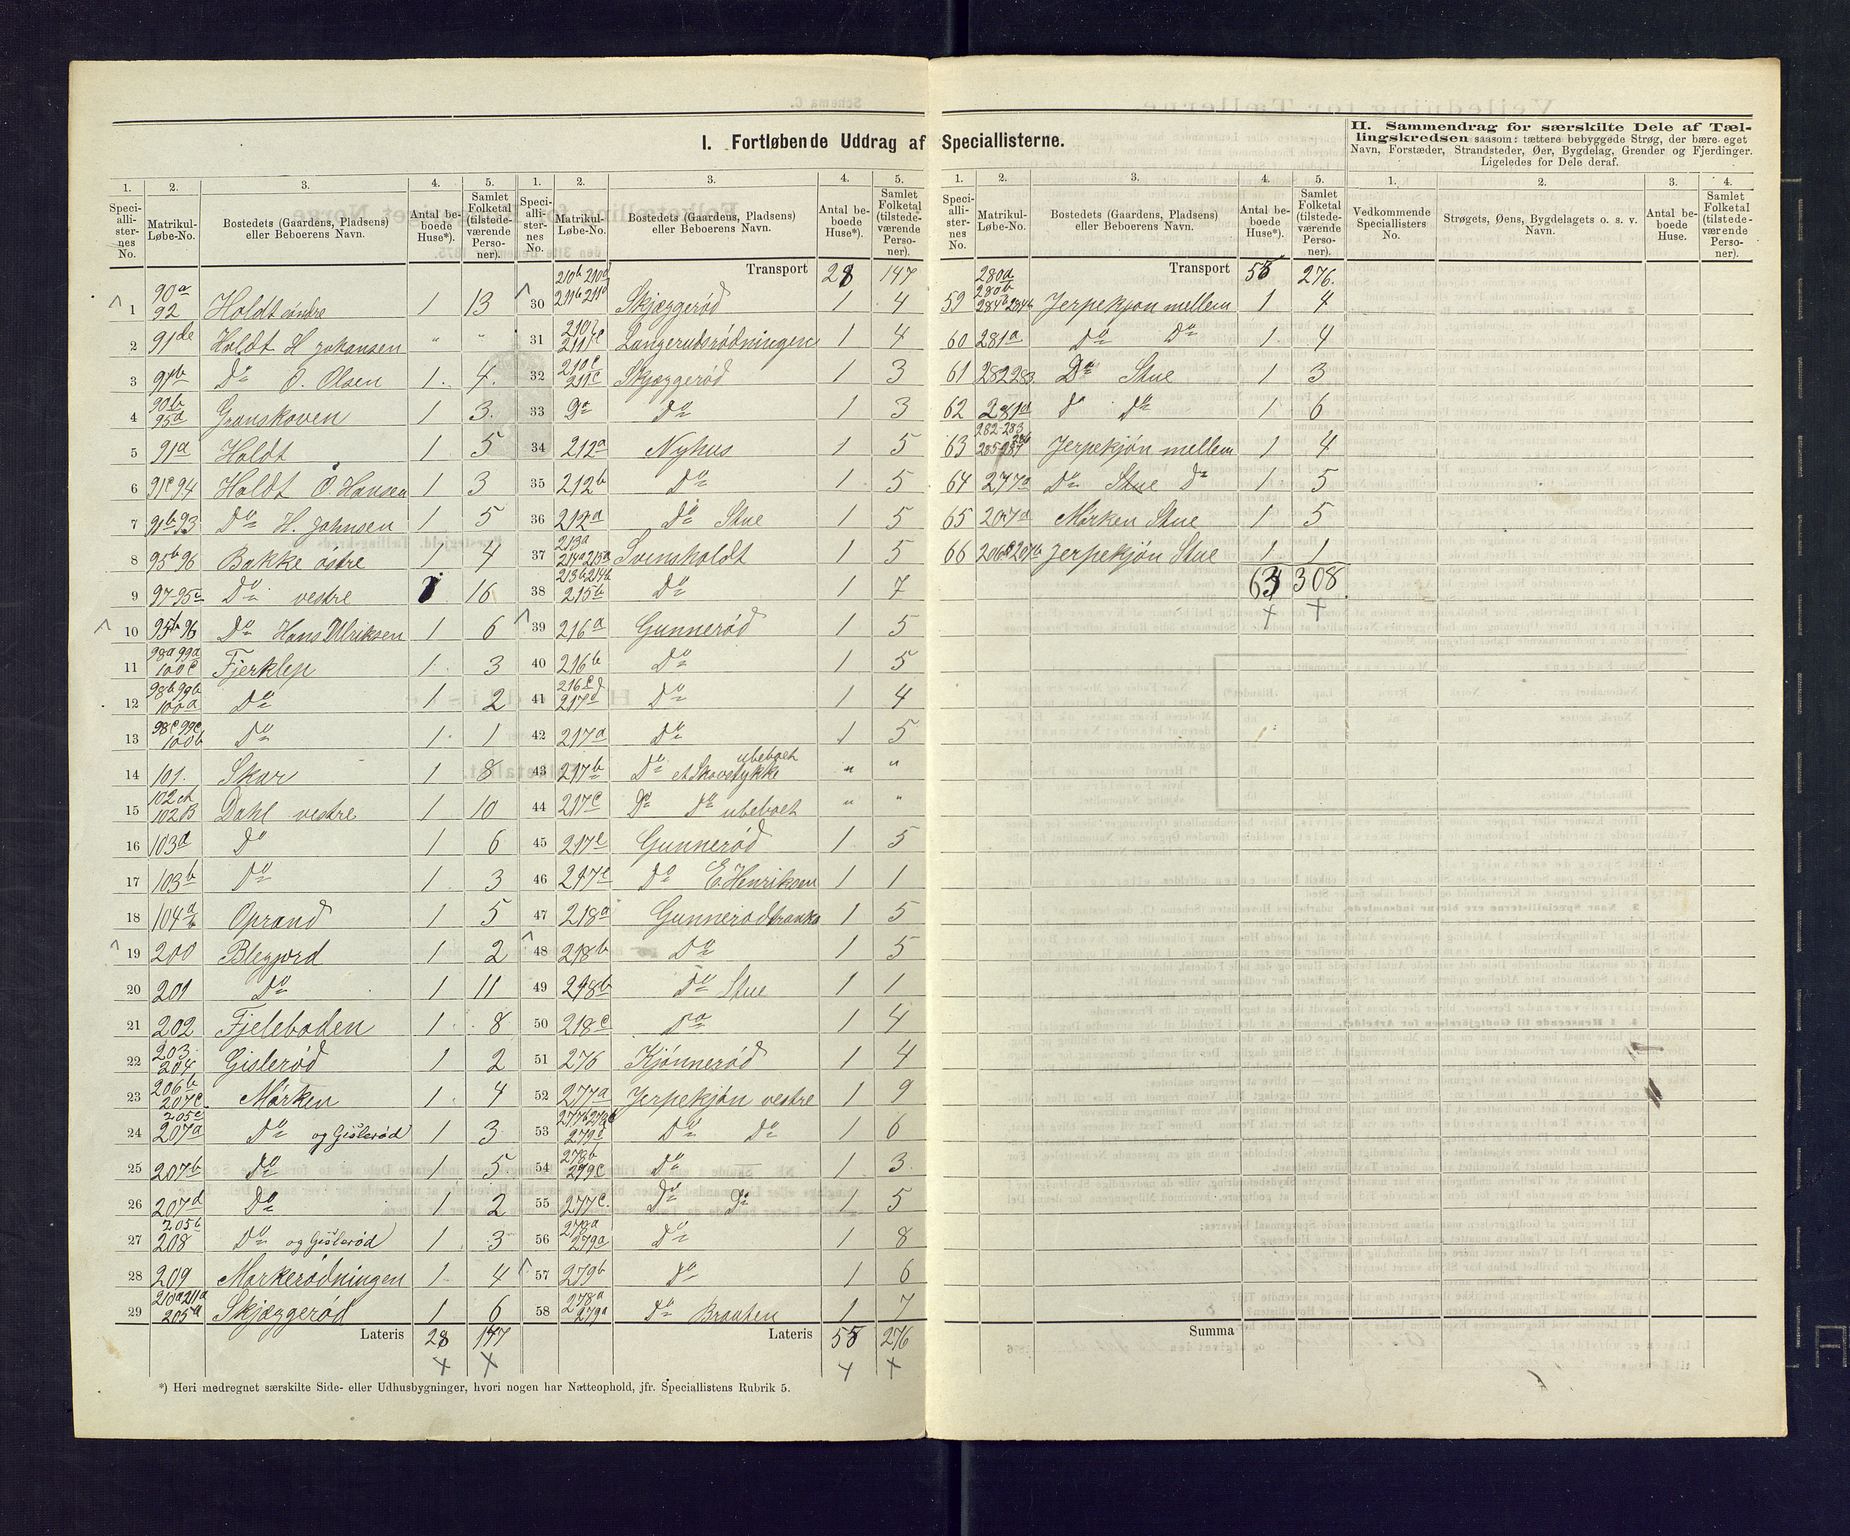 I. Fortløbende Uddrag af Speciallisterne.
II. Sammendrag for særskilte Dele af Tællingskredsen saasom: tættere bebyggede Strøg, der bære eget
Navn, Forstæder, Strandsteder, Øer, Bygdelag, Grender og Fjerdinger.
Ligeledes for Dele deraf.
1. 2. 3. 4. 5.
Speciallisternes No. Matrikul-Løbe-No. Bostedets (Gaardens, Pladsens) eller Beboerens Navn. Antal beboede Huse*). Samlet Folketal (tilstedeværende Personer).
1 90a 92 Holdt søndre 1 13
2 91de Holdt H Johansen " "
3 91b Do O. Olsen 1 4
4 90b 95a Granskoven 1 3
5 91a Holdt 1 5
6 91c94 Holdt O Hansen 1 3
7 91b93 Do H. Johnsen 1 5
8 95b96 Bakke østre 1 4
9 97-95c Do vestre 16
10 95b96 Do Hans Ulriksen 1 6
11 98a99a 100c Fjerklep 1 3
12 98b99b 100a Do 1 2
13 98c99c 100b Do 1 1
14 101. Skar 1 8
15 102B Dahl vestre 1 10
16 103a Do 1 6
17 103b Do 1 3
18 104a Oprand 1 5
19 200 Blegjord 1 2
20 201 Do 1 11
21 202 Fjeleboden 1 8
22 203 204 Gislerød 1 2
23 206b 207c Mørken 1 4
24 205c 207a Do og Gislerød 1 3
25 207b Do 1 5
26 207d Do 1 2
27 205b 208 Do og Gislerød 1 3
28 209 Mørkerødningen 1 4
29 210a211a 205a Skjæggerød 1 6
Lateris 28 147
1. 2. 3. 4. 5.
Speciallisternes No. Matrikul-Løbe-No. Bostedets (Gaardens, Pladsens) eller Beboerens Navn. Antal beboede Huse*). Samlet Folketal (tilstedeværende Personer).
Transport 28 147
30 210b210d 211b211d Skjæggerød 1 4
31 Langerudsrødningen 1 4
32 210c 211c Skjæggerød 1 3
33 Do 1 3
34 212a Nyhus 1 5
35 212b Do 1 5
36 212a Do Stue 1 5
37 213a 214a215a Svinsholdt 1 5
38 213b214b 215b Do 1 7
39 216a Gunnerød 1 5
40 216b Do 1 5
41 216c 217d Do 1 4
42 217a Do 1 5
43 217b Do et Skovstykke ubeboet " "
44 217c Do Do ubeboet " "
45 217e Gunnerød 1 5
46 217e Do E. Henriksen 1 1
47 218a Gunnerødbraaka 1 5
48 218b Do 1 5
49 218b Do Stue 1 1
50 218c Do 1 4
51 276 Kjønnerød 1 4
52 277a Jerpekjøn vestre 1 9
53 Do Do 1 6
54 278b 279c Do 1 3
55 277c Do Do 1 5
56 279a Do 1 8
57 279b Do 1 6
58 278a 279a Do Braaten 1 7
Lateris 55 276
*) Heri medregnet særskilte Side- eller Udhusbygninger, hvori nogen har Natteophold, jfr. Speciallistens Rubrik 5.
1. 2. 3. 4. 5.
Speciallisternes No. Matrikul-Løbe-No. Bostedets (Gaardens, Pladsens) eller Beboerens Navn. Antal beboede Huse*). Samlet Folketal (tilstedeværende Personer).
Transport 55 276.
59 280a 280b Jerpekjøn mellem 1 4
60 281a Do Do 1 4
61 282 283 Do Stue 1 3
62 281a Do Do 1 6
63 282-283 Jerpekjøn mellem 1 4
64 277a Do Stue Do 1 5
65 207a Mørken Stue 1 5
66 Jerpekjøn Stue 1 1
63 308
Summa
1. 2. 3. 4.
Vedkommende Speciallisters No. Strøgets, Øens, Bygdelagets o. s. v. Navn. Antal beboede Huse. Samlet Folketal (tilstedeværende Personer).